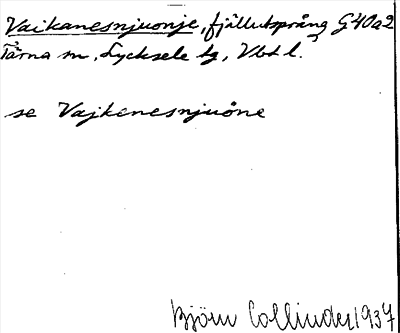 Vaikanesnjuonje, fjällutsprång G40a2
Tärna sn, Lycksele lg, Vbd l.
se Vajkanesnjuöne
Björn Collinder 1937